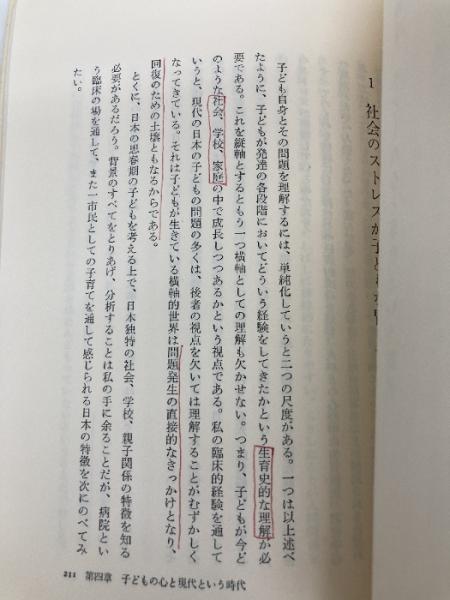 1 社会のストレスが子ども
子ども自身とその問題を理解するには、単純化していうと二つの尺度がある。一つは以上述べ
たように、子どもが発達の各段階においてどういう経験をしてきたかという生育史的な理解が必
要である。これを縦軸とするともう一つ横軸としての理解も欠かせない。つまり、子どもが今ど
のような社会、学校、家庭の中で成長しつつあるかという視点である。私の臨床的経験を通して
いうと、現代の日本の子どもの問題の多くは、後者の視点を欠いては理解することがむずかしく
なってきている。それは子どもが生きている横軸的世界は問題発生の直接的なきっかけとなり、
回復のための土壌ともなるからである。
とくに、日本の思春期の子どもを考える上で、日本独特の社会、学校、親子関係の特徴を知る
必要があるだろう。背景のすべてをとりあげ、分析することは私の手に余ることだが、病院とい
う臨床の場を通して、また一市民としての子育てを通して感じられる日本の特徴を次にのべてみ
たい。
211 第四章 子どもの心と現代という時代